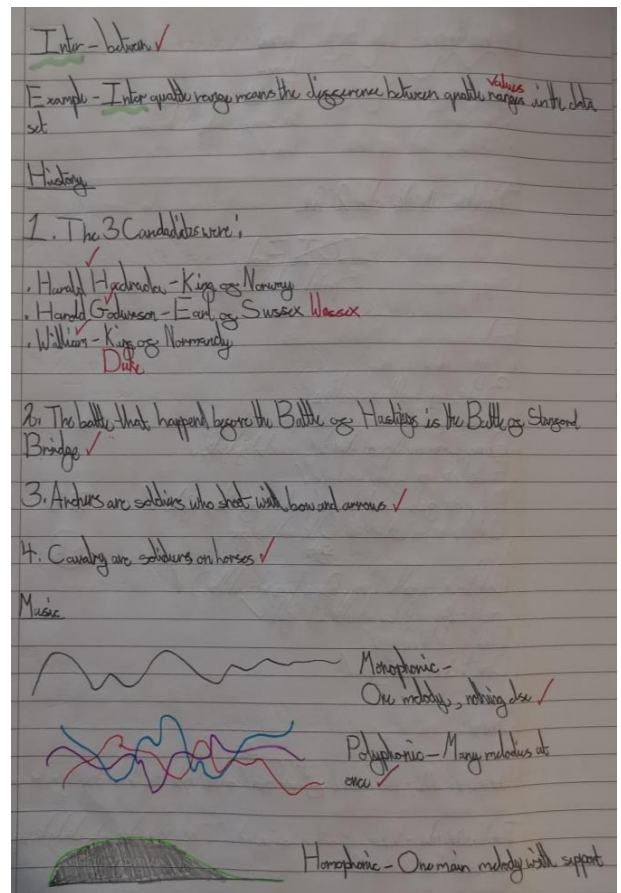 Inter - between ✓
values
Example - Inter quatile range means the difference between quatile ranges in the data
set
History
1. The 3 Candadidts were:
• Harald Hadrada - King of Norway
• Harold Godwinson - Earl of Sussex Wessex
• William - King of Normandy
Duke
2. The battle that happend before the Battle of Hastings is the Battle of Stanford
Bridge ✓
3. Archers are soldiers who shoot with bow and arrows ✓
4. Cavalry are soldiers on horses ✓
Music
Monophonic -
One melody, nothing else ✓
Polyphonic - Many melodies at
once ✓
Homophonic - One main melody with support